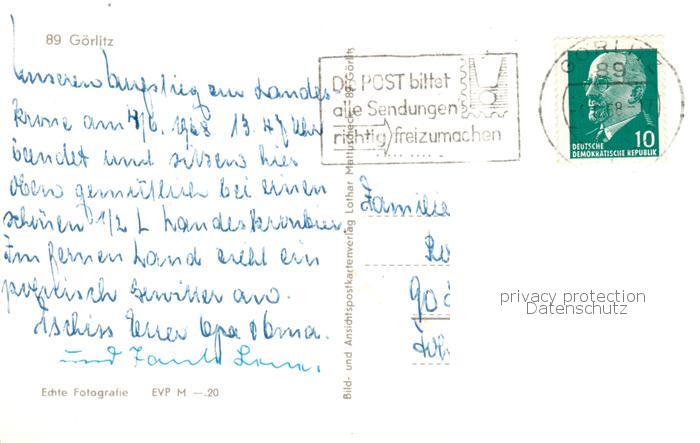 89 Görlitz
Unseren Aufstieg zur Landes-
krone am 4/6. 1968 13.47 Uhr
beendet und sitzen hier
oben gemütlich bei einem
schönen 1/2 L Landeskronbier.
Im fernen Land zieht ein
polnisch Gewitter an.
Tschiss Euer Opa Oma.
und Tante Lene.
Echte Fotografie EVP M —.20
Bild- und Ansichtspostkartenverlag Lothar 89 Görlitz
Die POST bittet
alle Sendungen
richtig freizumachen
GÖRLITZ
89
10
DEUTSCHE
DEMOKRATISCHE REPUBLIK
Familie
90
privacy protection
Datenschutz